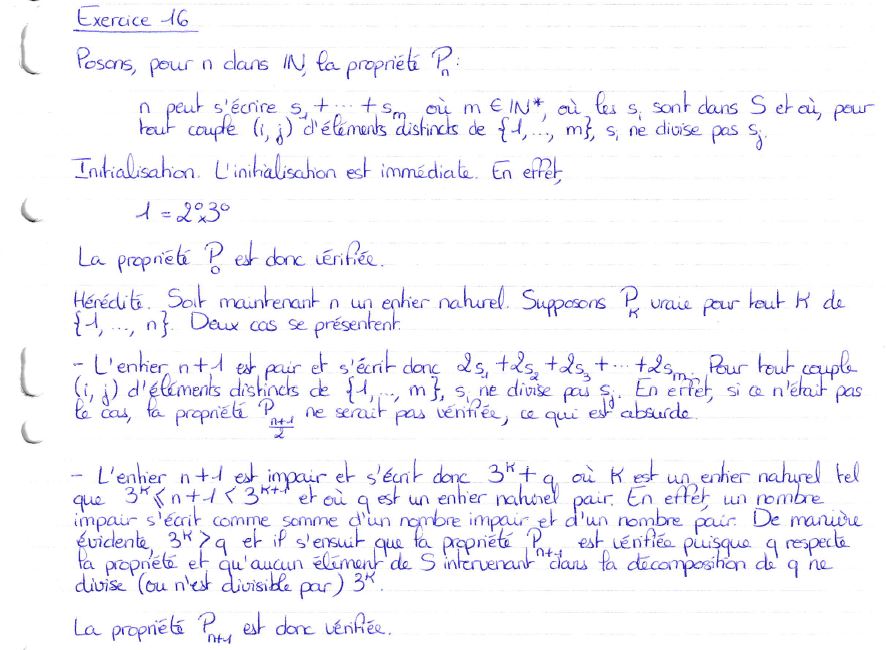 Exercice 16
Posons, pour n dans ℕ, la propriété Pₙ :
n peut s'écrire s₁ + ⋯ + sₘ où m ∈ ℕ*, où les sᵢ sont dans S et où, pour
tout couple (i, j) d'éléments distincts de {1, ..., m}, sᵢ ne divise pas sⱼ.
Initialisation. L'initialisation est immédiate. En effet,
1 = 2⁰×3⁰
La propriété P₀ est donc vérifiée.
Hérédité. Soit maintenant n un entier naturel. Supposons P_K vraie pour tout K de
{1, ..., n}. Deux cas se présentent.
- L'entier n+1 est pair et s'écrit donc 2s₁ + 2s₂ + 2s₃ + ⋯ + 2sₘ. Pour tout couple
(i, j) d'éléments distincts de {1, ..., m}, sᵢ ne divise pas sⱼ. En effet, si ce n'était pas
le cas, la propriété P_{(n+1)/2} ne serait pas vérifiée, ce qui est absurde.
- L'entier n+1 est impair et s'écrit donc 3ᴷ + q où K est un entier naturel tel
que 3ᴷ ⩽ n+1 < 3ᴷ⁺¹ et où q est un entier naturel pair. En effet, un nombre
impair s'écrit comme somme d'un nombre impair et d'un nombre pair. De manière
évidente, 3ᴷ > q et il s'ensuit que la propriété Pₙ₊₁ est vérifiée puisque q respecte
la propriété et qu'aucun élément de S intervenant dans la décomposition de q ne
divise (ou n'est divisible par) 3ᴷ.
La propriété Pₙ₊₁ est donc vérifiée.